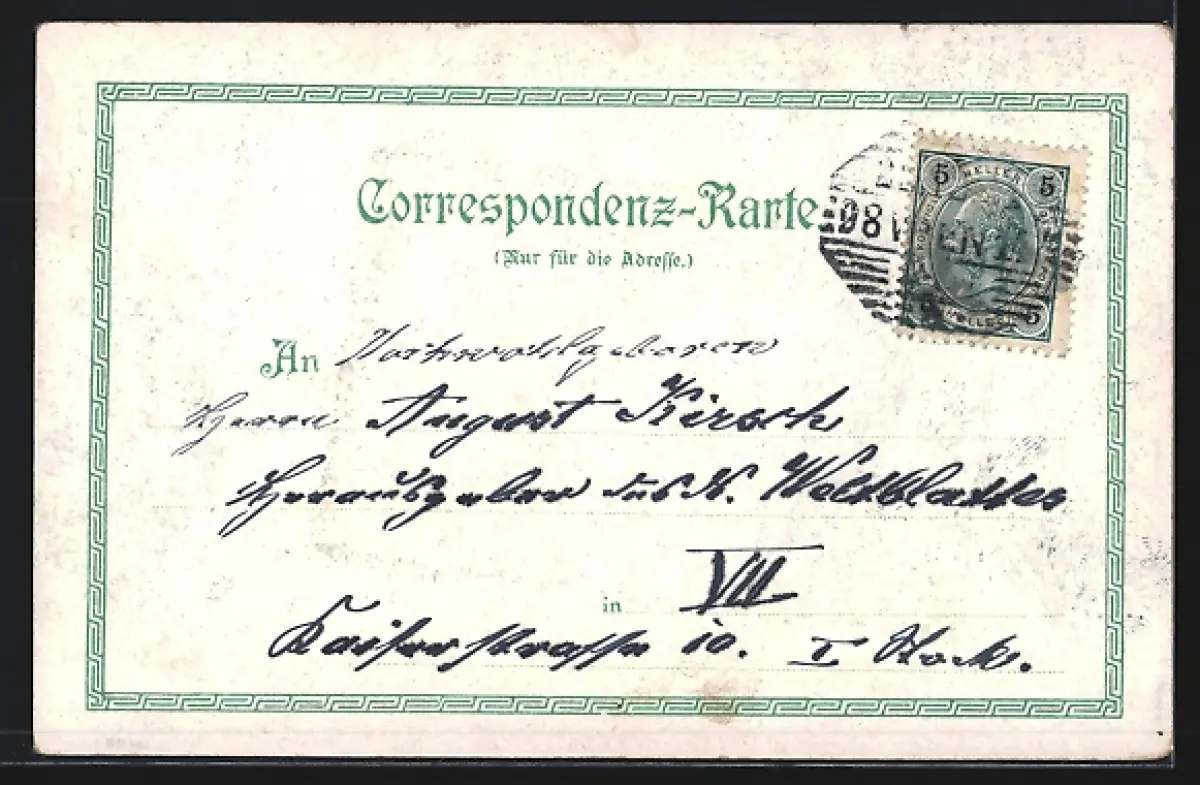 Correspondenz-Karte
(Nur für die Adresse.)
5 HELLER 5
5 HELLER 5
An Hochwohlgeboren
Herrn August Kirsch
Herausgeber des N. Weltblattes
in VII
Kaiserstrasse 10. I Stock.